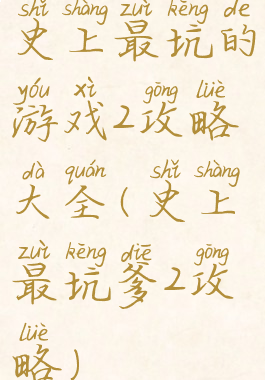 shǐ shàng zuì kēng de
史上最坑的
yóu xì gōng lüè
游戏2攻略
dà quán shǐ shàng
大全(史上
zuì kēng diē gōng
最坑爹2攻
lüè
略)